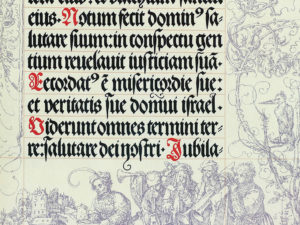 eius. Notum fecit dominꝰ sa⸗
lutare suum: in conspectu gen
tium reuelauit iusticiam suā.
Recordatꝰ ē misericordie sue:
et veritatis sue domui israel.
Viderunt omnes termini ter⸗
re: salutare dei nostri. Jubila⸗